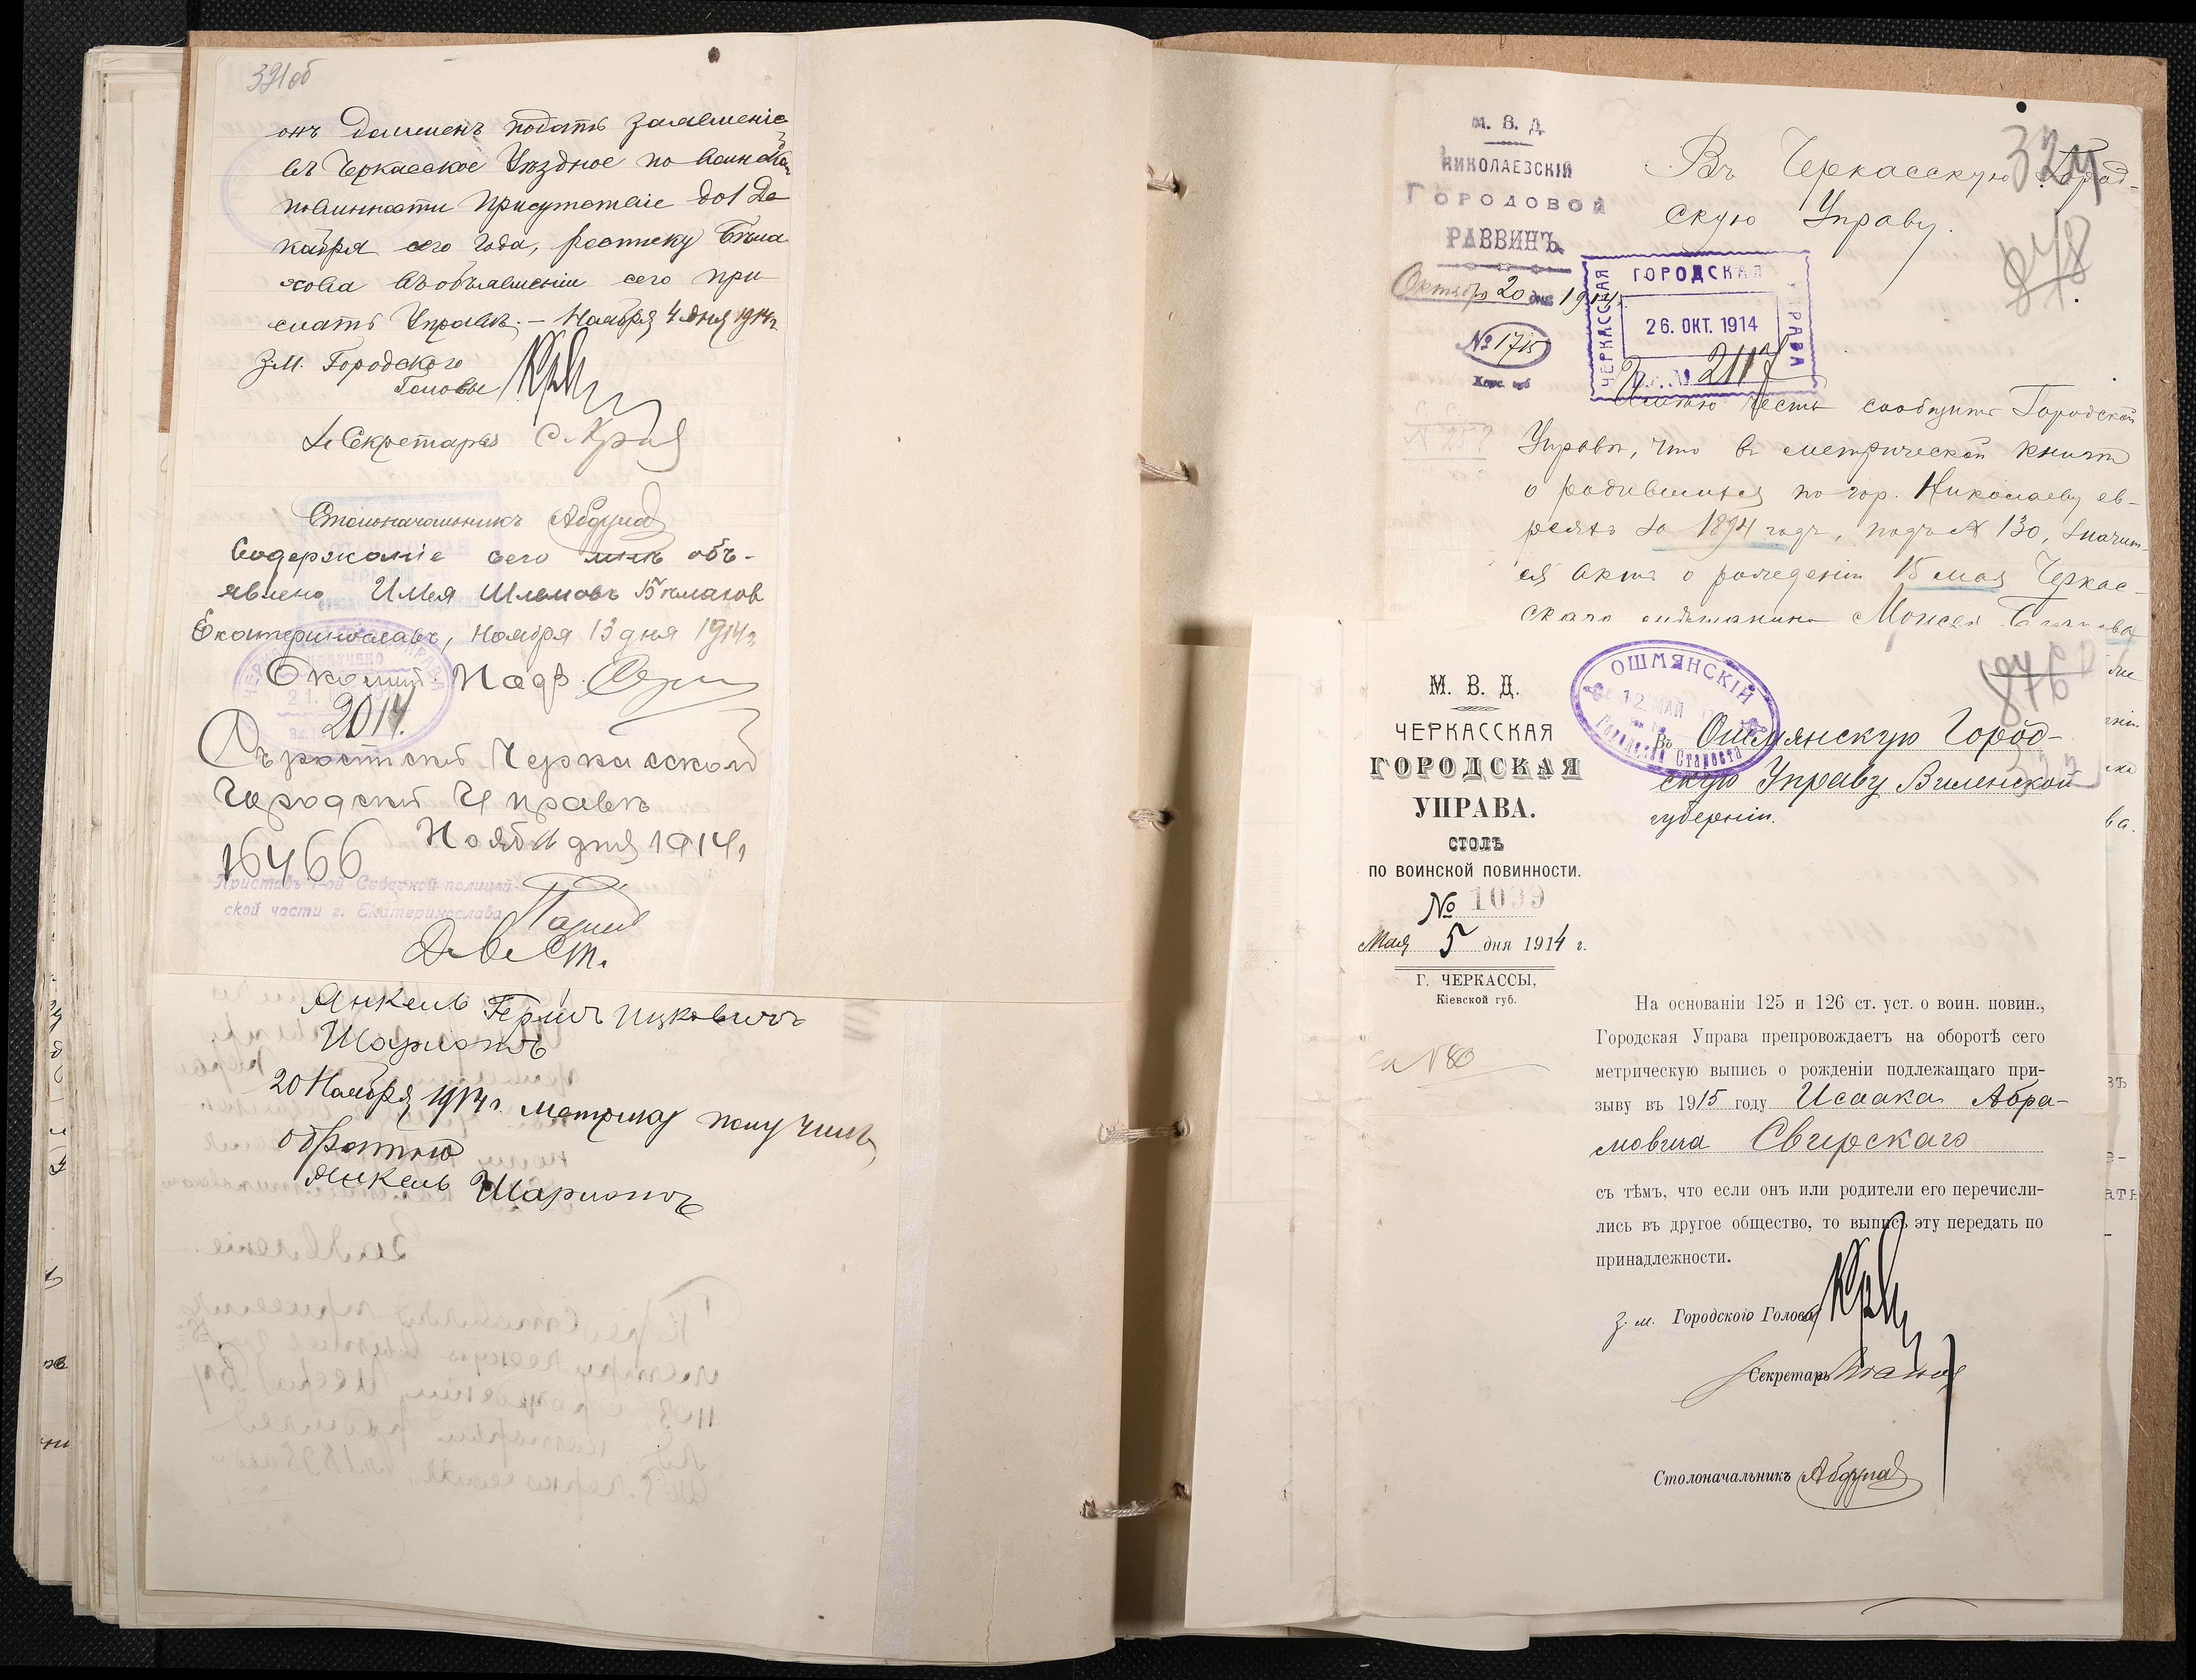 321об
онъ долженъ подать заявленіе
въ Черкасское Уѣздное по воинской
повинности Присутствіе до 1 Де
кабря сего года, росписку Бѣлма
хова въ объявленіи сего при
слать Управѣ. — Ноября 4 дня 1914 г.
З.м. Городского
Головы
Секретарь
Столоначальникъ Абдула
Содержаніе сего мнѣ объ-
явлено
Екатеринославъ, Ноября 13 дня 1914 г.
Околот. Надз.
2014.
Съ роспиской Черкасской
Городской Управѣ
Нояб 11 дня 1914 г.
16466
Приставъ 1-ой Соборной полицей-
ской части г. Екатеринослава
Янкель Гершъ Ицковичъ
Шарионъ
20 Ноября 1914 г. Метрику получилъ
обратно
Янкель Шарионъ
М. В. Д.
НИКОЛАЕВСКІЙ
ГОРОДОВОЙ
РАВВИНЪ
Октября 20 дня 1914 г.
№ 1715
Херс. губ
Въ Черкасскую Город-
скую Управу.
324
878
ЧЕРКАССКАЯ ГОРОДСКАЯ УПРАВА
26. ОКТ. 1914
Имѣю честь сообщить Городской
Управѣ, что въ метрической книгѣ
о родившихся по гор. Николаеву ев-
реяхъ за 1894 годъ, подъ № 130, значит-
ся актъ о рожденіи 15 мая Черкас-
скаго мѣщанина Моисея
876
М. В. Д.
ЧЕРКАССКАЯ
ГОРОДСКАЯ
УПРАВА.
СТОЛЪ
ПО ВОИНСКОЙ ПОВИННОСТИ.
№ 1039
Мая 5 дня 1914 г.
Г. ЧЕРКАССЫ,
Кіевской губ.
№ 80
ОШМЯНСКІЙ
12. МАЙ
Городской Староста
Въ Ошмянскую Город-
скую Управу Виленской
губерніи.
На основаніи 125 и 126 ст. уст. о воин. повин.,
Городская Управа препровождаетъ на оборотѣ сего
метрическую выпись о рожденіи подлежащаго при-
зыву въ 1915 году Исаака Абра-
мовича Свирскаго
съ тѣмъ, что если онъ или родители его перечисли-
лись въ другое общество, то выпись эту передать по
принадлежности.
з. м. Городского Головы
Секретарь
Столоначальникъ Абдула